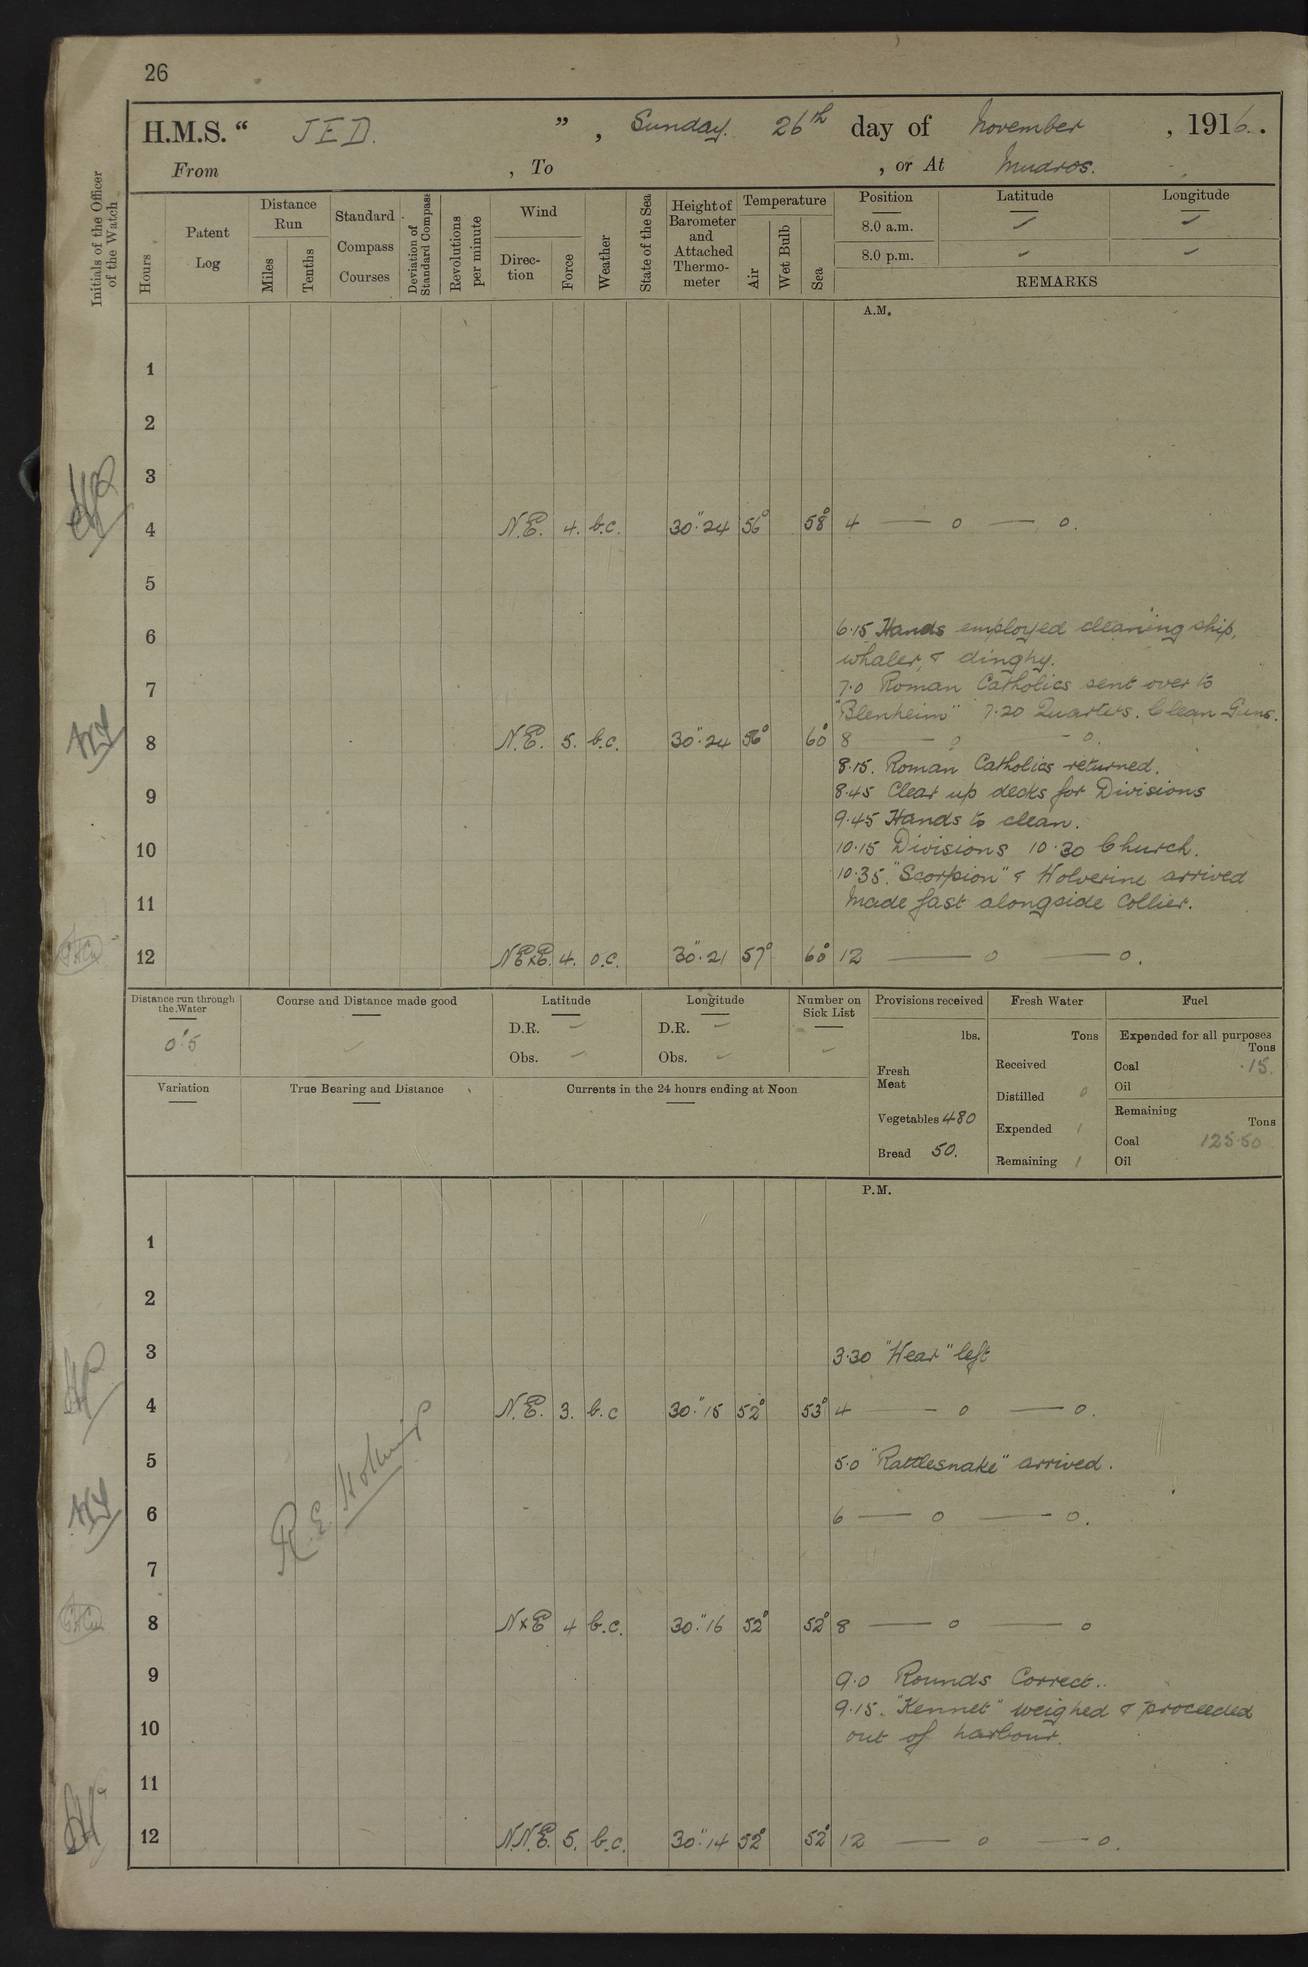 26
H.M.S. “ JED. ” , Sunday. 26th day of November , 1916.
From , To , or At Mudros.
Initials of the Officer of the Watch
Hours
Patent Log
Distance Run
Miles
Tenths
Standard Compass Courses
Deviation of Standard Compass
Revolutions per minute
Wind
Direction
Force
Weather
State of the Sea
Height of Barometer and Attached Thermometer
Temperature
Air
Wet Bulb
Sea
Position Latitude Longitude
8.0 a.m.
8.0 p.m.
REMARKS
A.M.
1
2
3
4 N.E. 4. b.c. 30".24 56° 58° 4 — o — o.
5
6 6.15 Hands employed cleaning ship,
whaler, & dinghy.
7 7.0 Roman Catholics sent over to
"Blenheim" 7.20 Quarters. Clean Guns.
8 N.E. 5. b.c. 30".24 56° 60° 8 — o - o.
8.15. Roman Catholics returned.
9 8.45 Clear up decks for Divisions
9.45 Hands to clean.
10 10.15 Divisions 10.30 Church.
10.35. "Scorpion" & Wolverine arrived
11 made fast alongside Collier.
12 NExE. 4. o.c. 30".21 57° 60° 12 — o — o.
Distance run through the Water
0'.5
Course and Distance made good
Latitude
D.R.
Obs.
Longitude
D.R.
Obs.
Number on Sick List
Provisions received
lbs.
Fresh Meat
Vegetables 480
Bread 50.
Fresh Water
Tons
Received
Distilled 0
Expended 1
Remaining 1
Fuel
Expended for all purposes
Tons
Coal .15.
Oil
Remaining
Tons
Coal 125.50
Oil
Variation
True Bearing and Distance
Currents in the 24 hours ending at Noon
P.M.
1
2
3 3.30 "Wear" left
4 N.E. 3. b.c 30".15 52° 53° 4 — o — o.
5 5.0 "Rattlesnake" arrived.
6 6 — o — o.
7
8 NxE 4 b.c. 30".16 52° 52° 8 — o — o
9 9.0 Rounds Correct..
9.15. "Kennet" weighed & proceeded
10 out of harbour.
11
12 N.N.E. 5. b.c. 30".14 52° 52° 12 — o - o.